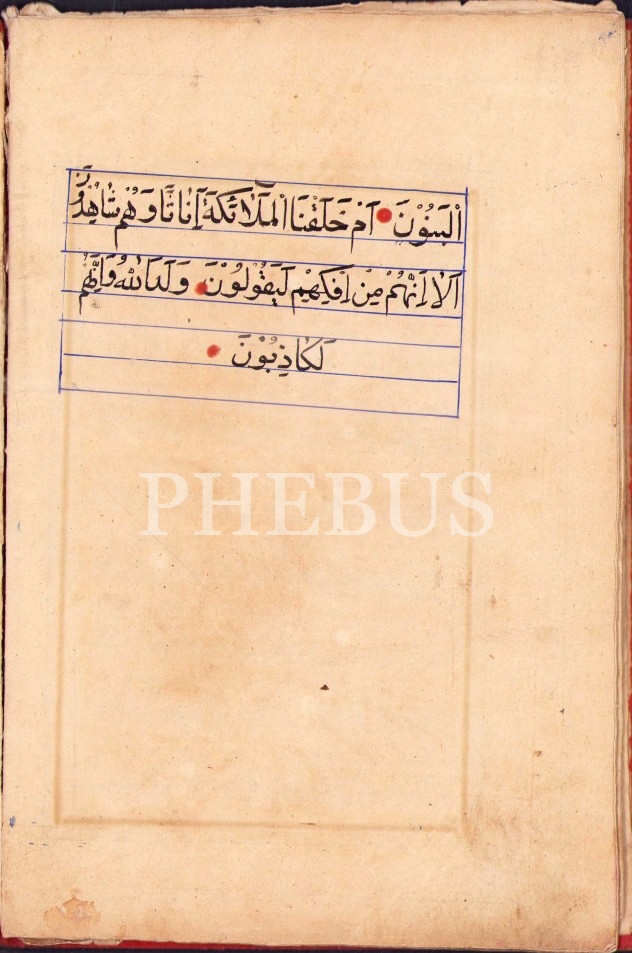 الْبَنُوْنَ اَمْ خَلَقْنَا الْمَلَائكَةَ اِنَاثًا وَهُمْ شَاهِدُونَ
اَلَا اِنَّهُمْ مِنْ اِفْكِهِمْ لَيَقُوْلُوْنَ وَلَدَ اللهُ وَاِنَّهُمْ
لَكَاذِبُوْنَ
PHEBUS